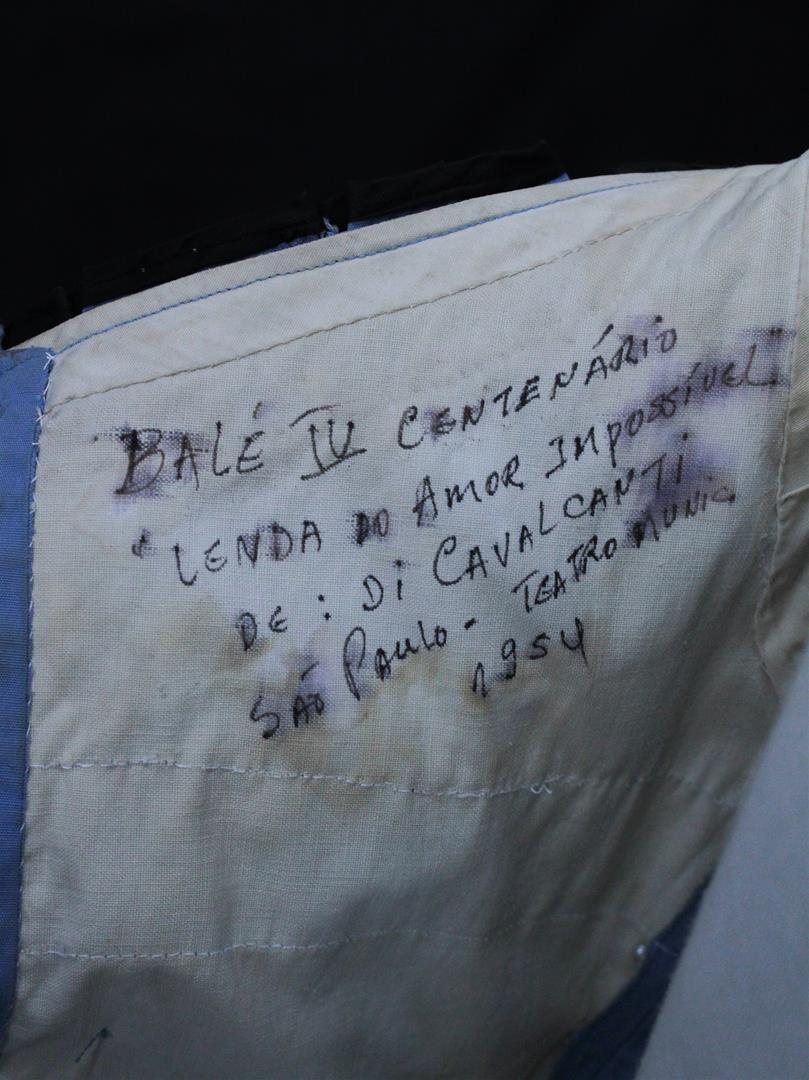 BALÉ IV CENTENÁRIO
"LENDA DO AMOR IMPOSSÍVEL"
DE: DI CAVALCANTI
SÃO PAULO - TEATRO MUNIC.
1954